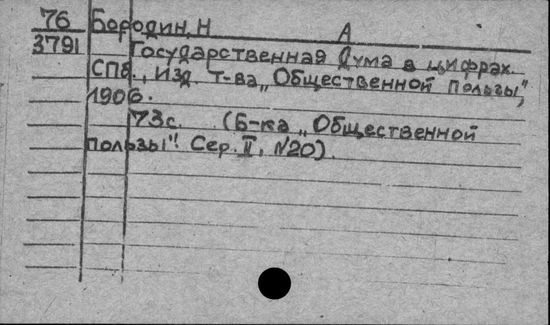 76 Бородин, Н А
3791 Государственная Дума в цифрах.
СПб., изд. т-ва „Общественной пользы",
1906.
73с. (Б-ка „Общественной
пользы". Сер. II, №20).